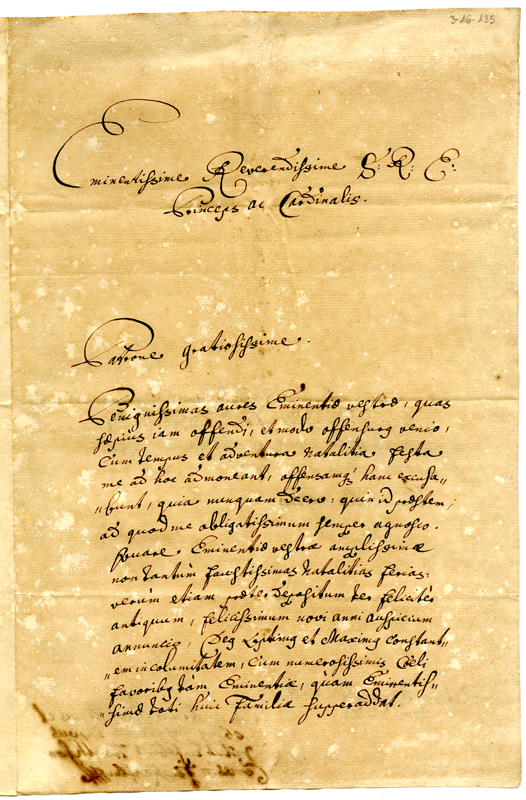 3-16-135
Eminentissime Reverendissime S: R: E:
Princeps ac Cardinalis.
Patrone gratiosissime.
Benignissimas aures Eminentiæ vestræ, quas
sæpius iam offendi, et modo offensurg venio,
Cum tempus et adventura Natalitia festa
me ad hoc admoneant, offensamq hanc excusa„
„bunt, quia nunquam deero: quin id præstem,
ad quod me obligatissimum semper agnosco.
Eminentiæ vestræ amplissimæ
non tantum faustissimas Natalitias ferias:
verum etiam præter depositum ter feliciter
antiquum, felicissimum novi anni auspicium
annuncio, Deg et Maximg constant„
„em incolumitatem, Cum numerosissimis Cæli
favoribg tam Eminentiæ, quam Eminentis„
„simæ toti huic Familiæ superaddat.